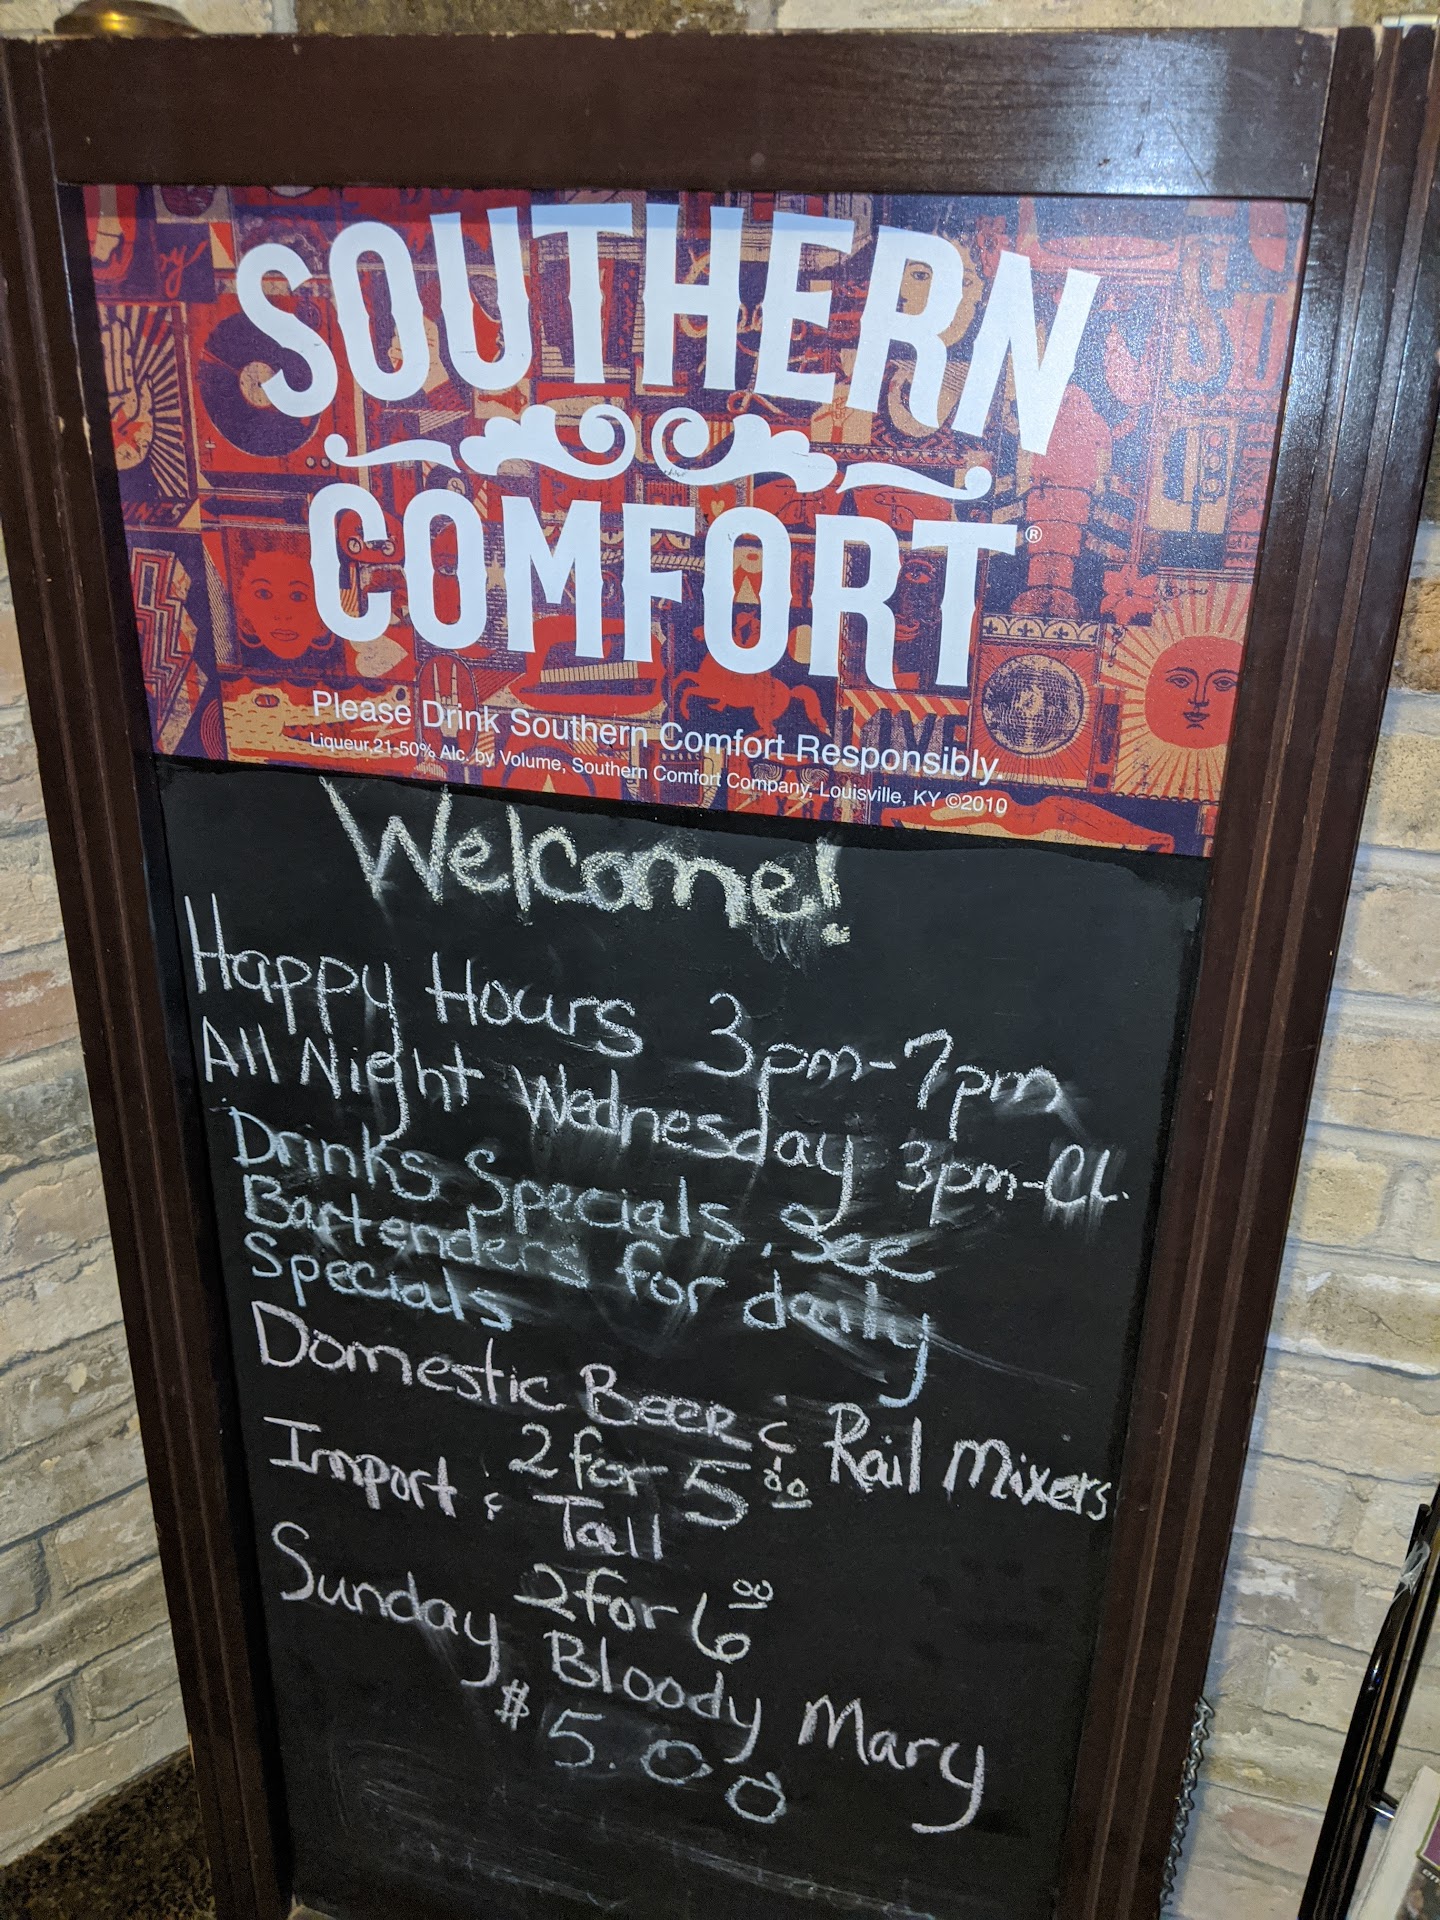 SOUTHERN
COMFORT®
Please Drink Southern Comfort Responsibly.
Liqueur, 21-50% Alc. by Volume, Southern Comfort Company, Louisville, KY ©2010
Welcome!
Happy Hours 3pm-7pm
All Night Wednesday 3pm-CL.
Drinks Specials. See
Bartenders for daily
Specials
Domestic Beer & Rail Mixers
2 for 5.00
Import & Tall
2 for 6 00
Sunday Bloody Mary
$5.00